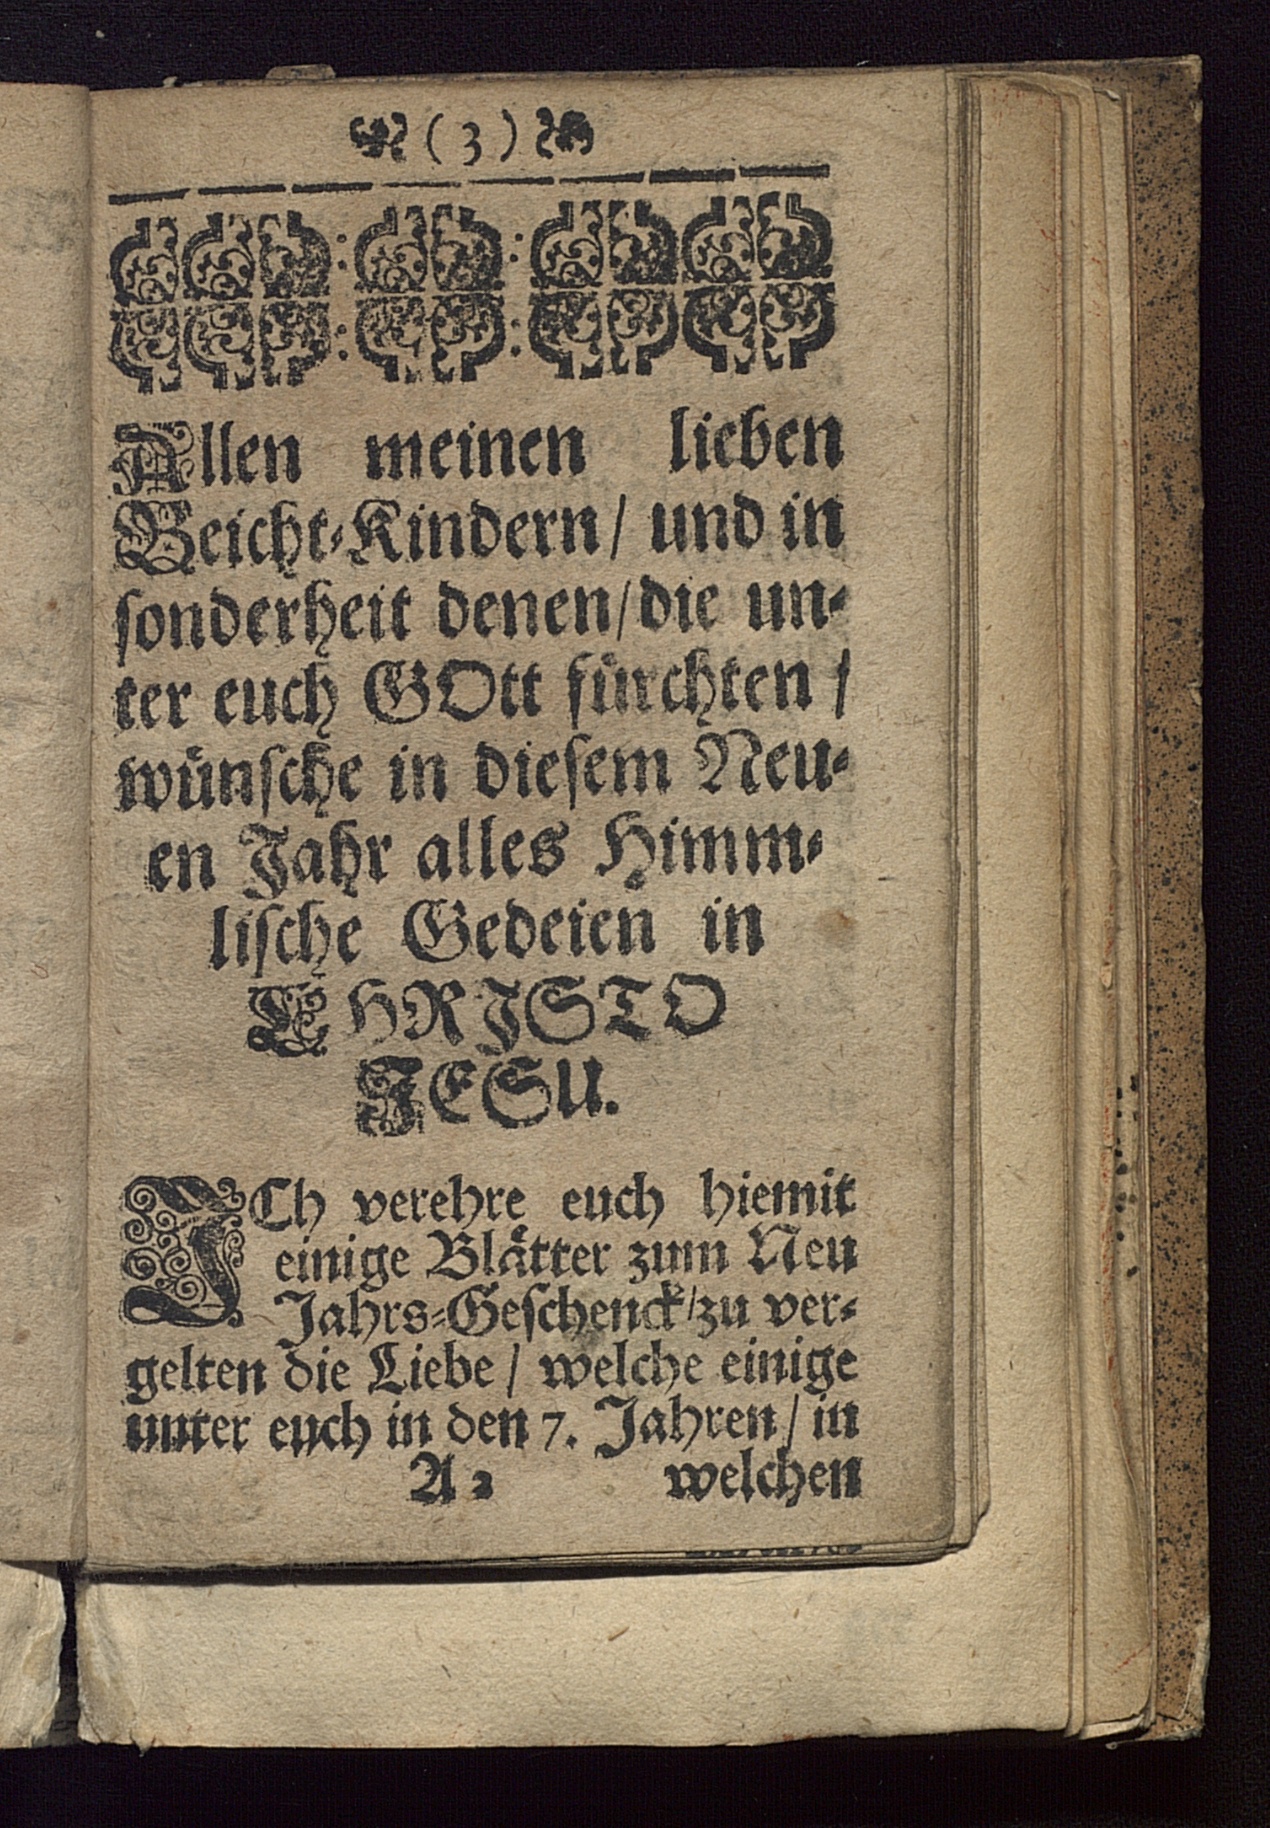 ( 3 )
Allen meinen lieben
Beicht-Kindern/ und in
sonderheit denen/die un-
ter euch GOtt fürchten /
wünsche in diesem Neu-
en Jahr alles Himm-
lische Gedeien in
CHRJSTO
JESU.
JCh verehre euch hiemit
einige Blätter zum Neu
Jahrs-Geschenck/zu ver-
gelten die Liebe / welche einige
unter euch in den 7. Jahren / in
A 2 welchen